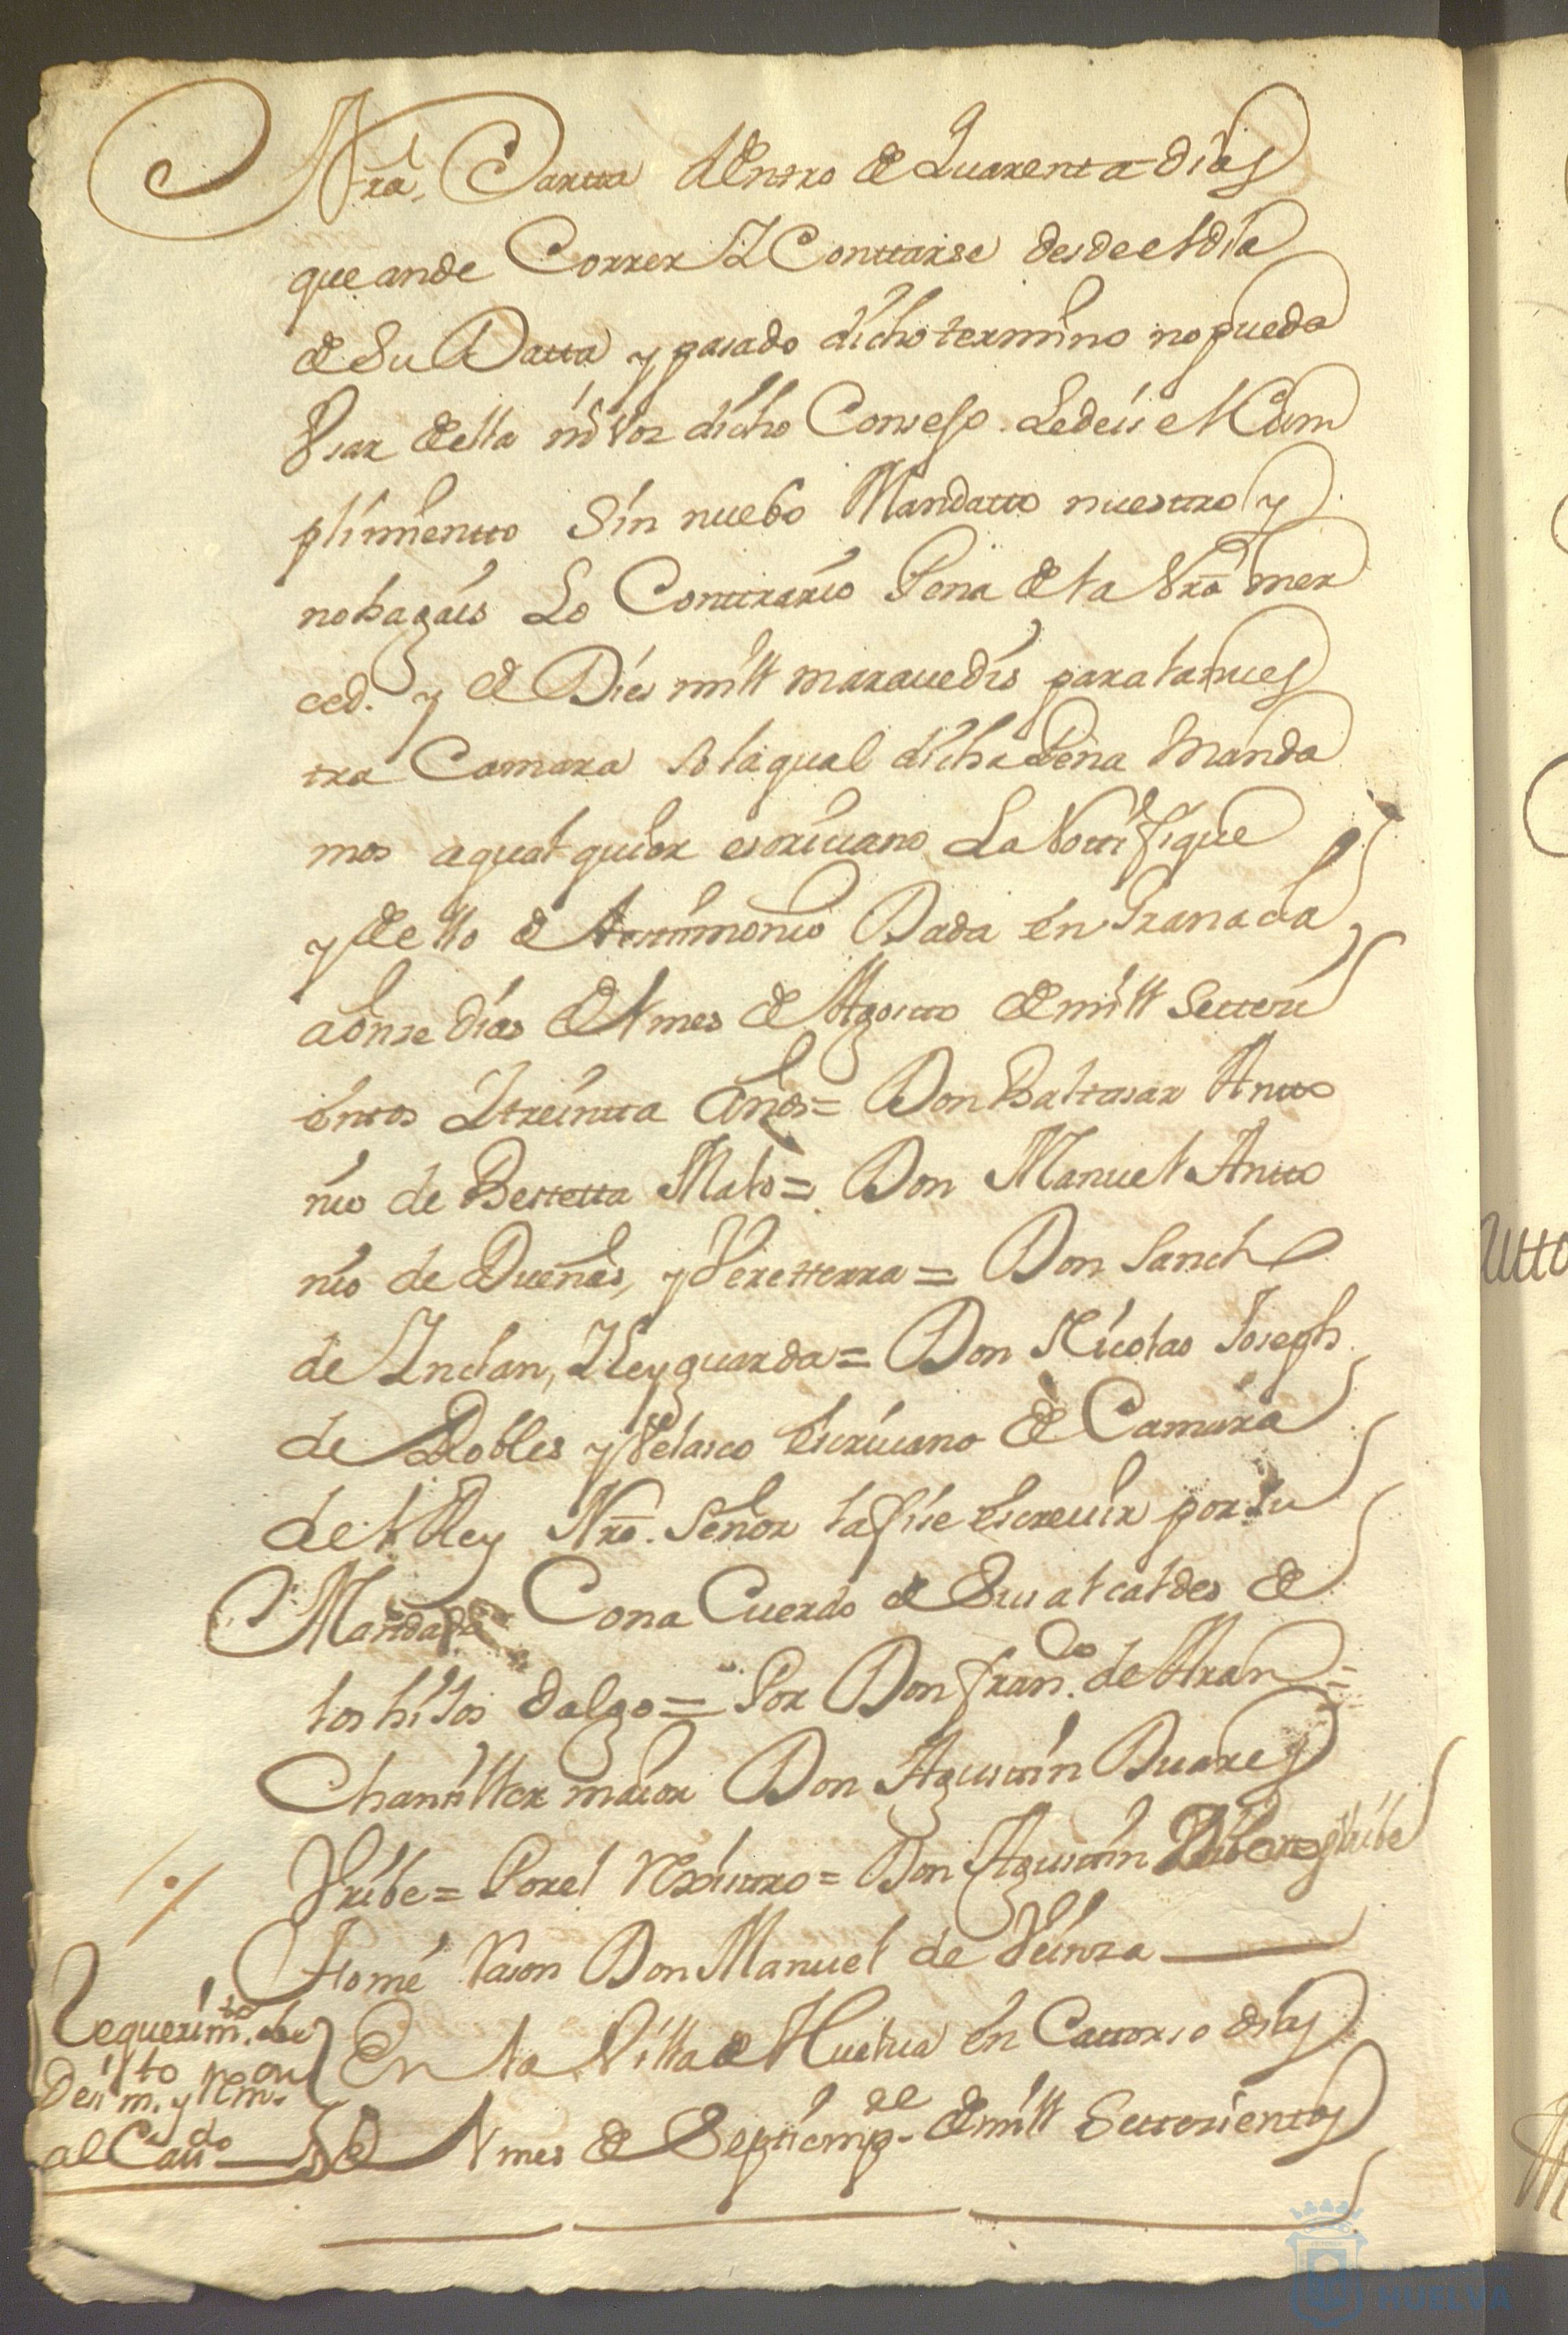 Nra. Cartta dentro de Quarenta dias
que ande Correr Y Conttarse desde el dia
de Su Datta y pasado dicho termino no pueda
Usar della ni Vos dicho Consejo Ledeis el Cum
plimientto Sin nuebo Mandatto nuesttro y
no hagais Lo Conttrario Pena de la Nra mer
ced. y de Dies mill maravedis para la nues
tra Camara So la qual dicha Pena Manda
mos a qual quier escrivano La Nottifique
y de ello de testtimonio Dada en Granada
a onse dias del mes de Agostto de mill Setteci
entos Y treintta Años = Don Balttasar Antto
nio de Bettetta Mato = Don Manuel Antto
nio de Dueñas, y Veretterra = Don Sanch
de Ynclan, Y Leyguarda = Don Nicolas Joseph
de Robles y Velasco Escrivano de Camara
del Rey Nro. Señor la fise Escrevir por su
Mandado Con a Cuerdo de Sus alcaldes de
los hijos dalgo = Por Don franco. de Aran =
Chansiller maior Don Agusttin Duarez
Uribe = Por el Rexisttro = Don Agusttin Uribe
Thomé Rason Don Manuel de Veinza
Requerimto. de
Desistto
y
al Cavdo
En la Villa de Huelva en Cattorse dias
del mes de Septiempre de mill Settesientos
HUELVA